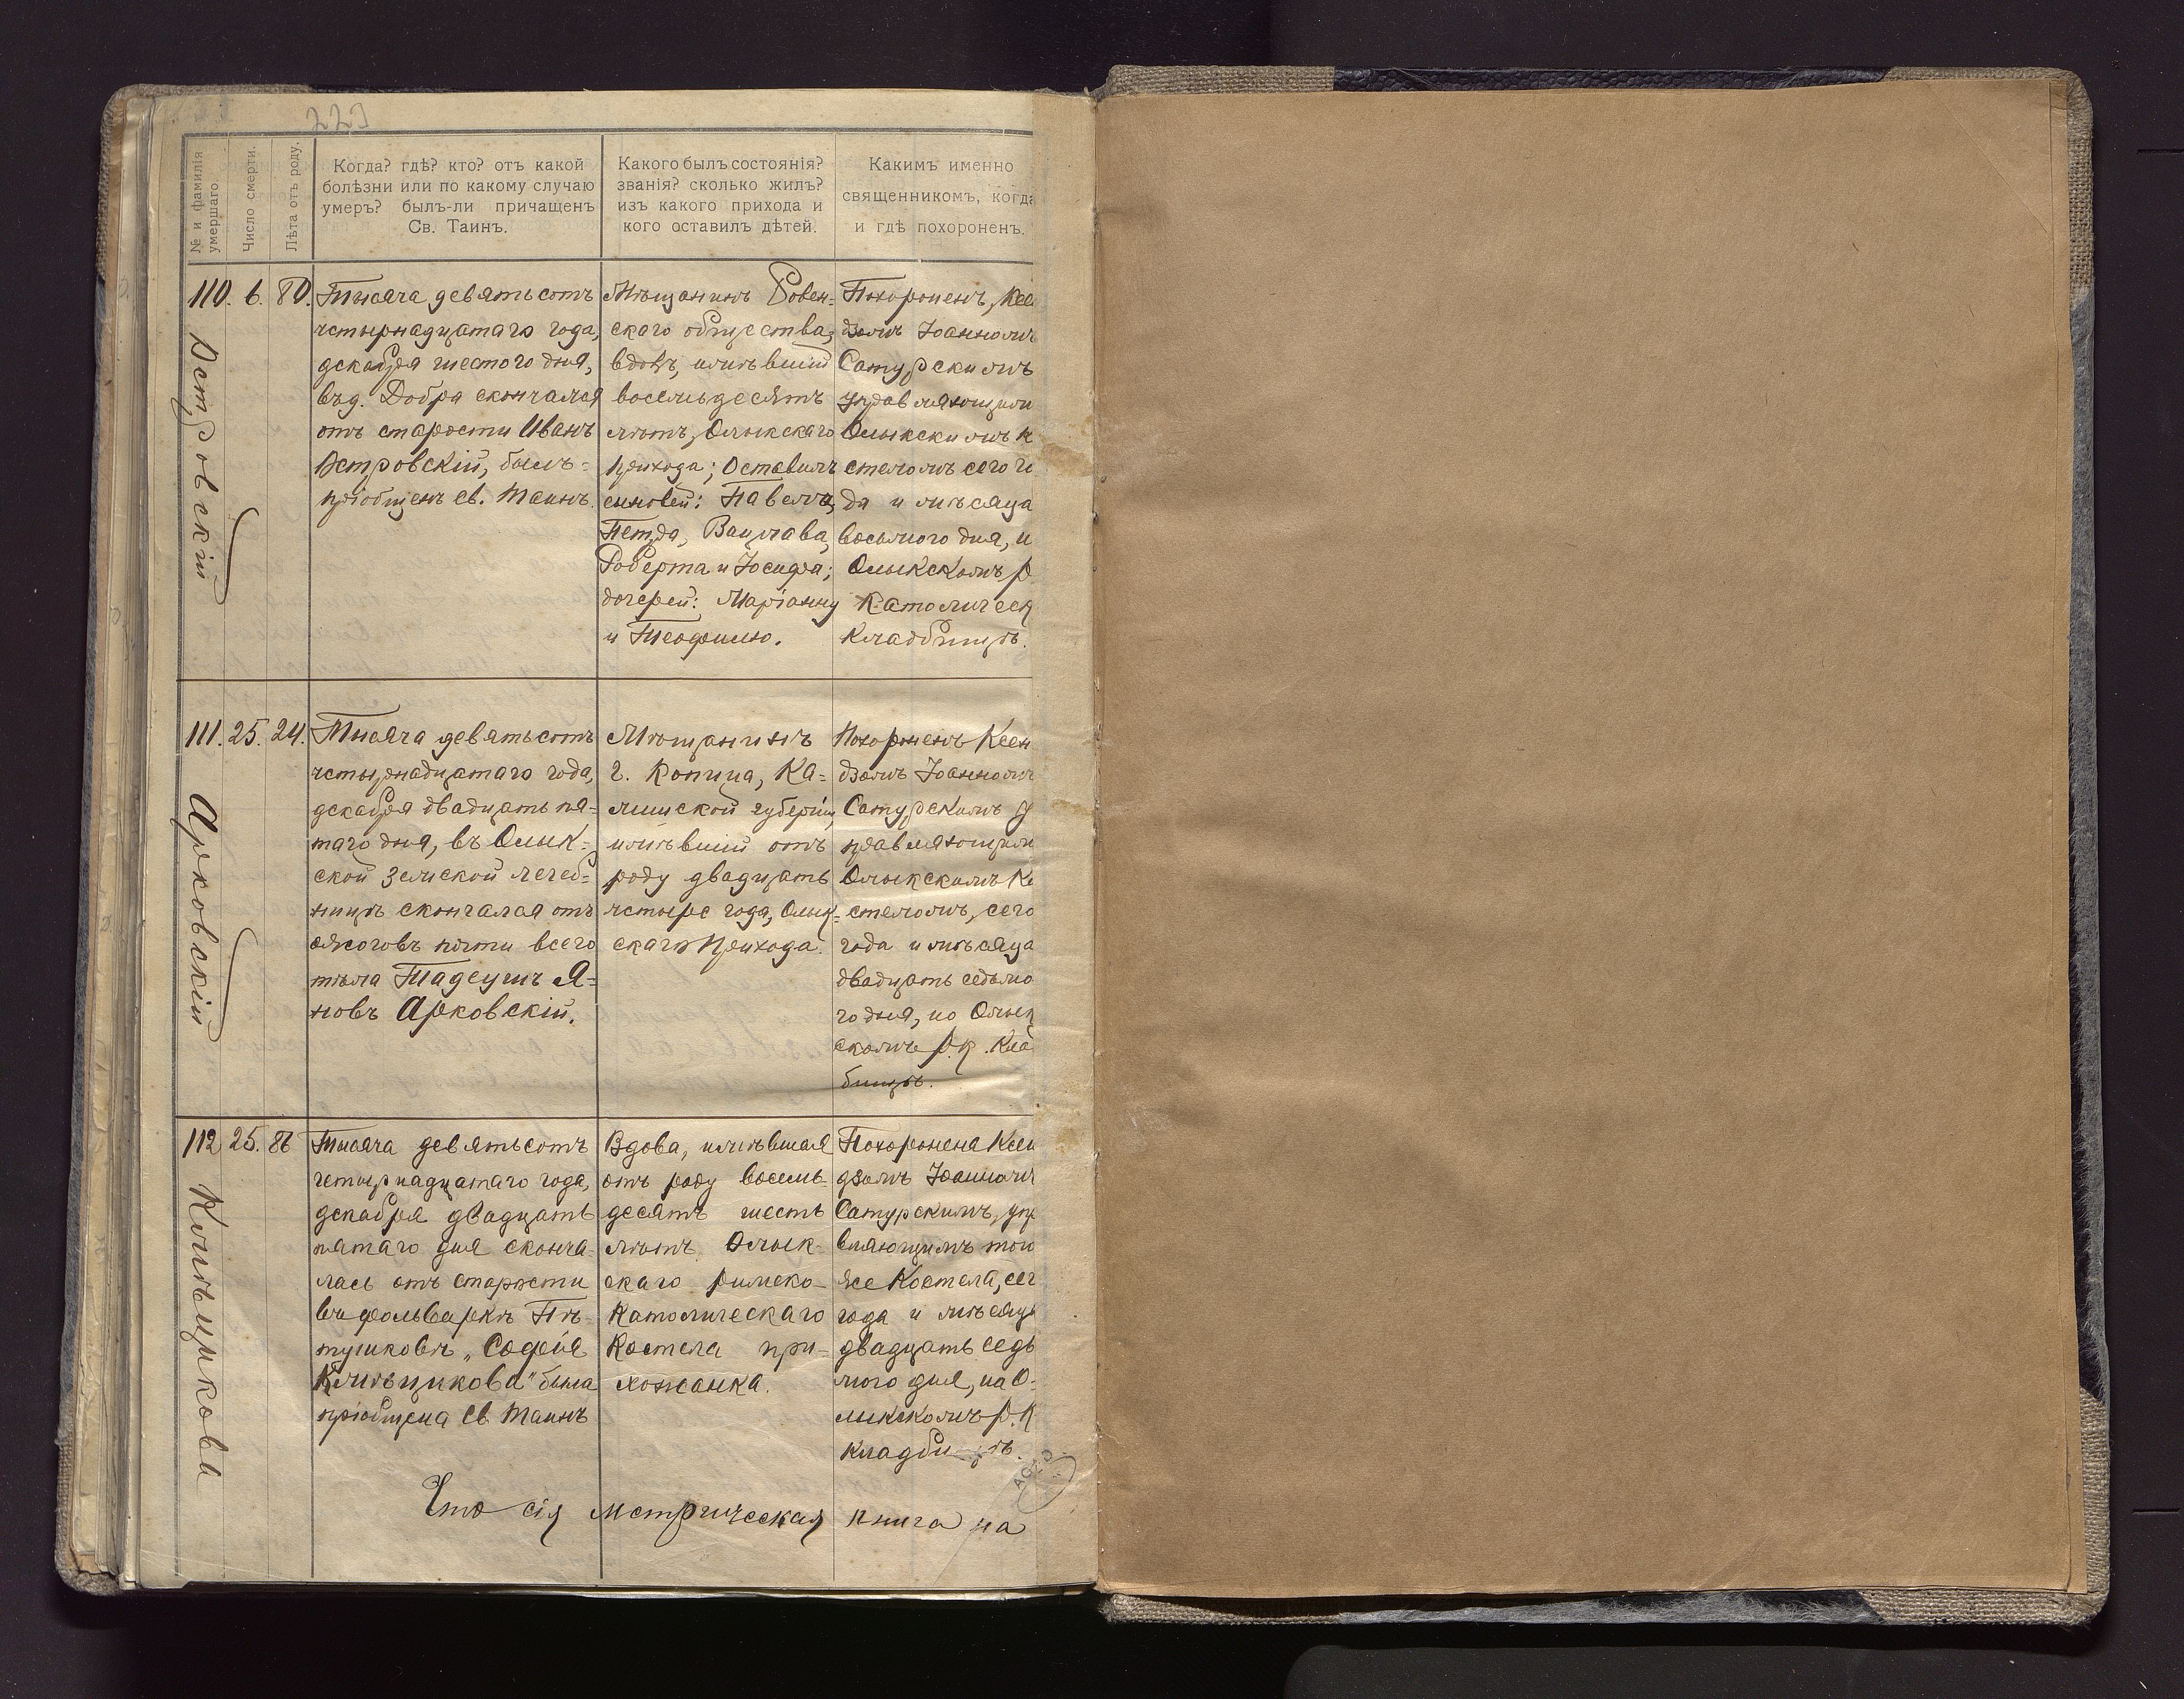 223
№ и фамилія умершаго.
Число смерти.
Лѣта отъ роду.
Когда? гдѣ? кто? отъ какой
болѣзни или по какому случаю
умеръ? былъ-ли причащенъ
Св. Таинъ.
Какого былъ состоянія?
званія? сколько жилъ?
изъ какого прихода и
кого оставилъ дѣтей.
Какимъ именно
священникомъ, когда
и гдѣ похороненъ.
110. 6. 80.
Островскій
Тысяча девятьсотъ
четырнадцатаго года,
декабря шестого дня,
въ д. Добра скончался
отъ старости Иванъ
Островскій, былъ-
пріобщенъ Св. Таинъ.
Мѣщанинъ Ровен-
ского общества,
вдовъ, имѣвшій
восемьдесятъ
лѣтъ, Олыкскаго
прихода; Оставилъ
сыновей: Павелъ,
Петра, Вацлава,
Роберта и Іосифа;
дочерей: Маріанну
и Теофилю.
Похороненъ, Ксен
дзомъ Іоанномъ
Сатурскимъ
управляющим
Олыкскимъ К
стеломъ сего го
да и мѣсяца
восьмого дня, н
Олыкскомъ Р.
Католическ
Кладбищѣ.
111. 25. 24.
Арковскій
Тысяча девятьсотъ
четырнадцатаго года,
декабря двадцать пя-
таго дня, въ Олык-
ской Земской лечеб-
ницѣ скончался отъ
ожоговъ почти всего
тѣла Тадеушъ Я-
новъ Арковскій.
Мѣщанинъ
г. Конина, Ка-
лишской губерніи,
имѣвшій отъ
роду двадцать
четыре года, Олык-
скаго Прихода.
Похороненъ Ксен
дзомъ Іоанномъ
Сатурскимъ у
правляющим
Олыкскимъ Ко
стеломъ, сего
года и мѣсяца
двадцать седьмо
го дня, на Олык
скомъ Р. К. Клад
бищѣ.
112 25. 86
Клѣщикова
Тысяча девятьсотъ
четырнадцатаго года,
декабря двадцать
пятаго дня сконча-
лась отъ старости
въ фольваркѣ Пѣ-
тушковъ „Софія
Клѣщикова" была
пріобщена Св. Таинъ
Вдова, имѣвшая
отъ роду восемь-
десятъ шесть
лѣтъ Олык-
скаго римско-
Католическаго
Костела при-
хожанка.
Похоронена Ксен
дзомъ Іоанномъ
Сатурскимъ, упр
вляющимъ того
же Костела, сег
года и мѣсяца
двадцать седь
мого дня, на О-
лыкскомъ Р. К
кладбищѣ.
Что сія метрическая книга на